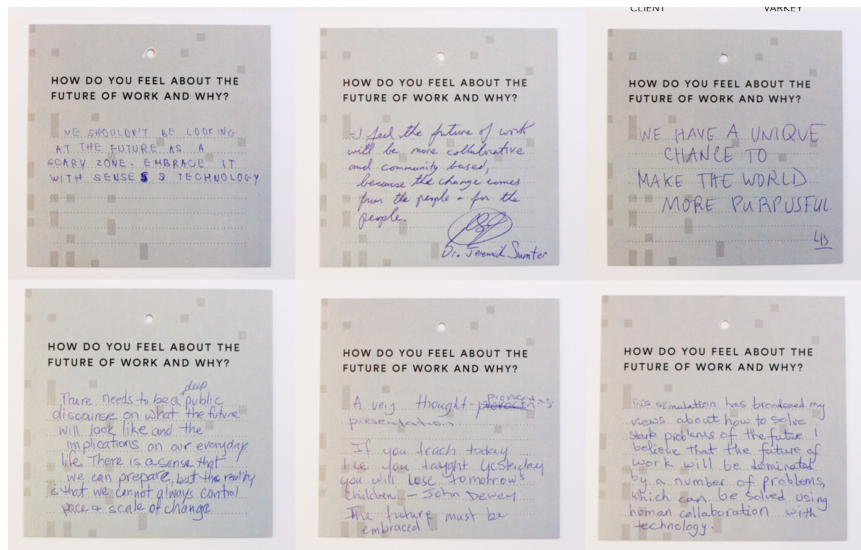 CLIENT
VARKEY
HOW DO YOU FEEL ABOUT THE
FUTURE OF WORK AND WHY?
WE SHOULDN'T BE LOOKING
AT THE FUTURE AS A
SCARY ZONE. EMBRACE IT
WITH SENSES & TECHNOLOGY
HOW DO YOU FEEL ABOUT THE
FUTURE OF WORK AND WHY?
I feel the future of work
will be more collaborative
and community based,
because the change comes
from the people - for the
people.
Dr. Jeremiah Sumter
HOW DO YOU FEEL ABOUT THE
FUTURE OF WORK AND WHY?
WE HAVE A UNIQUE
CHANCE TO
MAKE THE WORLD
MORE PURPUSFUL
HOW DO YOU FEEL ABOUT THE
FUTURE OF WORK AND WHY?
There needs to be a deep public
discourse on what the future
will look like and the
implications on our everyday
life. There is a sense that
we can prepare, but the reality
is that we cannot always control
pace & scale of change
HOW DO YOU FEEL ABOUT THE
FUTURE OF WORK AND WHY?
A very thought-
presentation
If you teach today
like you taught yesterday
you will lose tomorrow's
children - John Dewey
The future must be
embraced
HOW DO YOU FEEL ABOUT THE
FUTURE OF WORK AND WHY?
This simulation has broadened my
views about how to solve
problems of the future. I
believe that the future of
work will be dominated
by a number of problems,
which can be solved using
human collaboration with
technology.